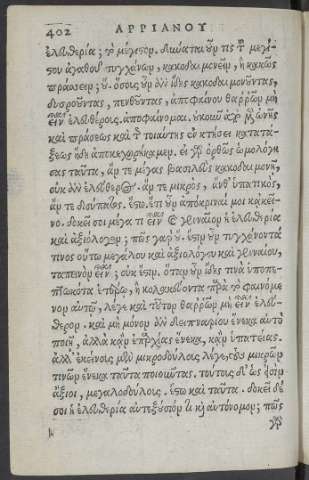 402 ΑΡΡΙΑΝΟΥ
ἐλευθερία; τὸ μέγιστον. δύναται οὖν τὶς τοῦ μεγί-
στου ἀγαθοῦ τυγχάνων, κακοδαιμονεῖν, ἢ κακῶς
πράσσειν; οὔ. ὅσους οὖν ἂν ἴδῃς κακοδαιμονοῦντας,
δυσροοῦντας, πενθοῦντας, ἀποφαίνου θαῤῥῶν μὴ
εἶναι ἐλευθέρους. ἀποφαίνομαι. οὐκοῦν ἀπὸ μὲν ὠνῆς
καὶ πράσεως καὶ τῆς τοιαύτης ἐν κτήσει κατατά-
ξεως ἤδη ἀποκεχωρήκαμεν. εἰ γὰρ ὀρθῶς ὡμολόγη-
σας ταῦτα, ἄν τε μέγας βασιλεὺς κακοδαιμονῇ,
οὐκ ἂν ἐλεύθερος. ἄν τε μικρὸς, ἄν θ' ὑπατικὸς,
ἄν τε δισύπατος. ἔστω. ἔτι οὖν ἀπόκριναί μοι κἀκεῖ-
νο. δοκεῖ σοι μέγα τι εἶναι καὶ γενναῖον ἡ ἐλευθερία
καὶ ἀξιόλογον; πῶς γὰρ οὔ. ἔστιν οὖν τυγχάνοντά
τινος οὕτω μεγάλου καὶ ἀξιολόγου καὶ γενναίου,
ταπεινὸν εἶναι; οὐκ ἔστιν. ὅταν οὖν ἴδῃς τινὰ ὑποπε-
πτωκότα ἑτέρῳ, ἢ κολακεύοντα παρὰ τὸ φαινόμε
νον αὐτῷ, λέγε καὶ τοῦτον θαῤῥῶν μὴ εἶναι ἐλεύ-
θερον. καὶ μὴ μόνον ἂν δειπναρίου ἕνεκα αὐτὸ
ποιῇ, ἀλλὰ κἂν ἐπαρχίας ἕνεκα, κἂν ὑπατείας.
ἀλλ' ἐκείνους μὲν μικροδούλους λέγε, τοὺς μικρῶν
τινῶν ἕνεκα ταῦτα ποιοῦντας. τούτους δ' ὡς εἰσὶν
ἄξιοι, μεγαλοδούλους. ἔστω καὶ ταῦτα. δοκεῖ δέ
σοι ἡ ἐλευθερία αὐτεξούσιόν τι καὶ αὐτόνομον; πῶς
γὰρ